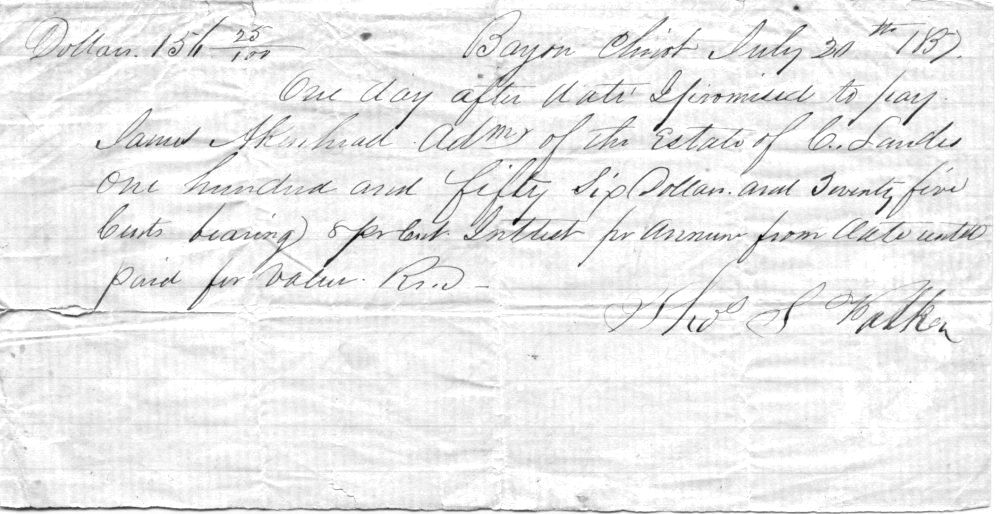 Dollars. 156 25/100 Bayou Chicot July 20th 1857.
One day after date I promised to pay
James Akenhead Admr of the Estate of C. Landes
One hundred and fifty Six Dollars and Twenty five
Cents bearing 8 pr Cent Interest pr Annum from date until
paid for Value Rcd
Thos S Walker